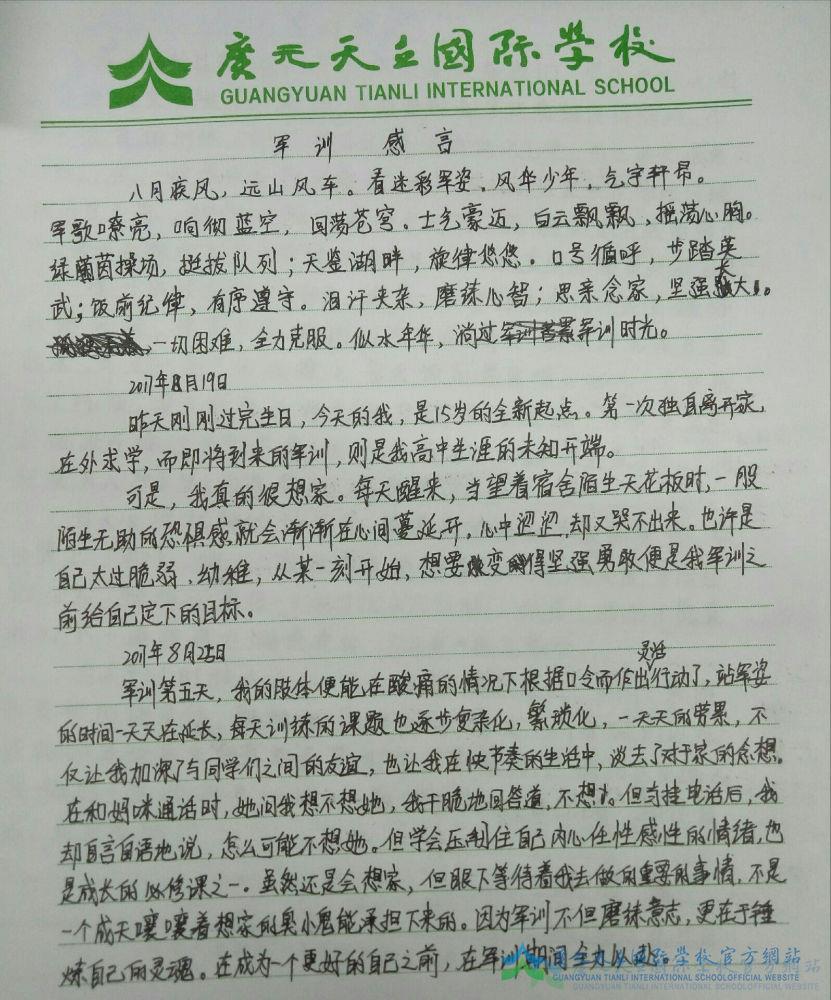 廣元天立國际學校
GUANGYUAN TIANLI INTERNATIONAL SCHOOL
军训 感言
八月疾风，远山风车。看迷彩军姿，风华少年，气宇轩昂。
军歌嘹亮，响彻蓝空，回荡苍穹。士气豪迈，白云飘飘，摇荡心胸。
绿茵操场，挺拔队列；天鉴湖畔，旋律悠悠。口号循呼，步踏英
武；饭前纪律，有序遵守。泪汗夹杂，磨练心智；思亲念家，坚强大。
一切困难，全力克服。似水年华，淌过军训时光。
2017年8月19日
昨天刚刚过完生日，今天的我，是15岁的全新起点。第一次独自离开家，
在外求学，而即将到来的军训，则是我高中生涯的未知开端。
可是，我真的很想家。每天醒来，当望着宿舍陌生天花板时，一股
陌生无助的恐惧感就会渐渐在心间蔓延开，心中，却又哭不出来。也许是
自己太过脆弱、幼稚，从某一刻开始，想要变得坚强勇敢便是我军训之
前给自己定下的目标。
2017年8月25日
军训第五天，我的肢体便能在酸痛的情况下根据口令而作出灵活行动了，站军姿
的时间一天天在延长，每天训练的课题也逐步复杂化，繁琐化，一天天的劳累，不
仅让我加深了与同学们之间的友谊，也让我在快节奏的生活中，淡去了对于家的念想。
在和妈咪通话时，她问我想不想她，我干脆地回答道，不想。但当挂电话后，我
却自言自语地说，怎么可能不想她。但学会压制住自己内心任性感性的情绪，也
是成长的必修课之一。虽然还是会想家，但眼下等待着我去做的重要的事情，不是
一个成天嚷嚷着想家的臭小鬼能承担下来的。因为军训不但磨练意志，更在于锤
炼自己的灵魂。在成为一个更好的自己之前，在军训期间全力以赴。
國际學校官方網站
GUANGYUAN TIANLI INTERNATIONAL SCHOOLOFFICIAL WEBSITE